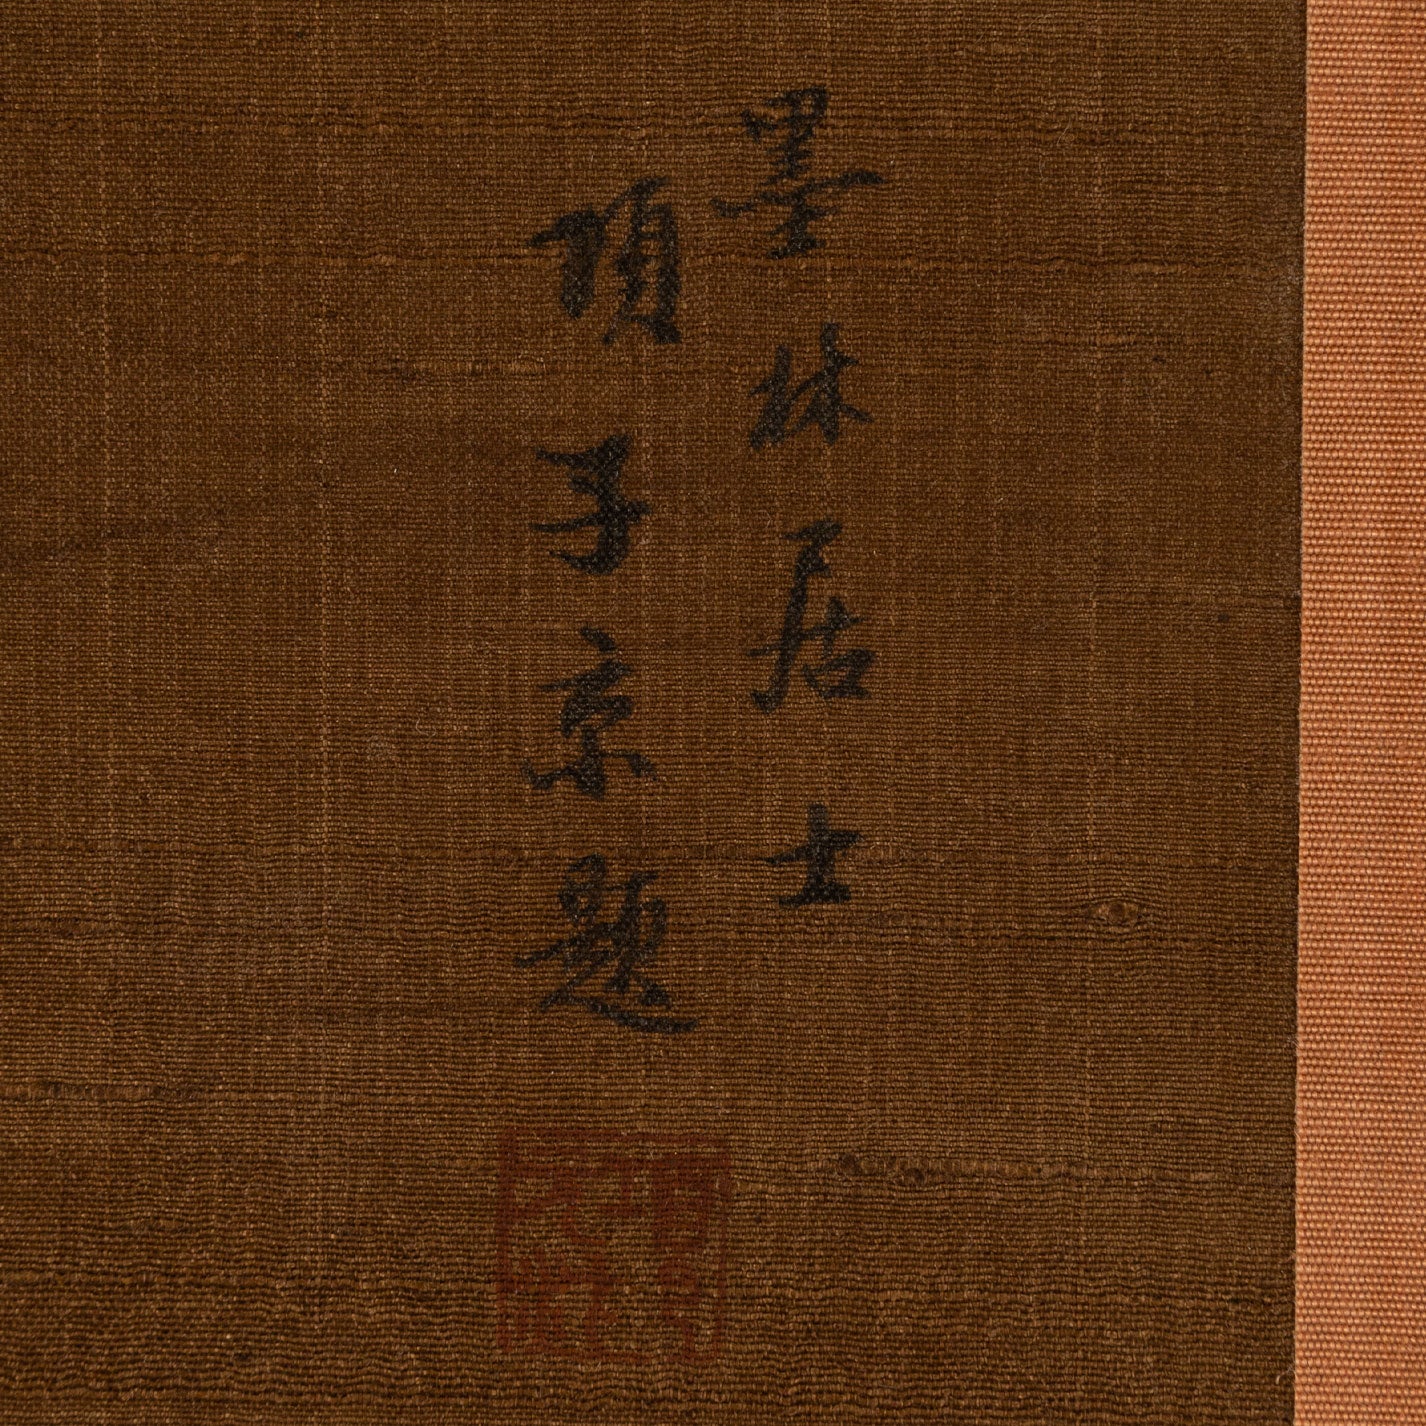 墨林居士
項子京題